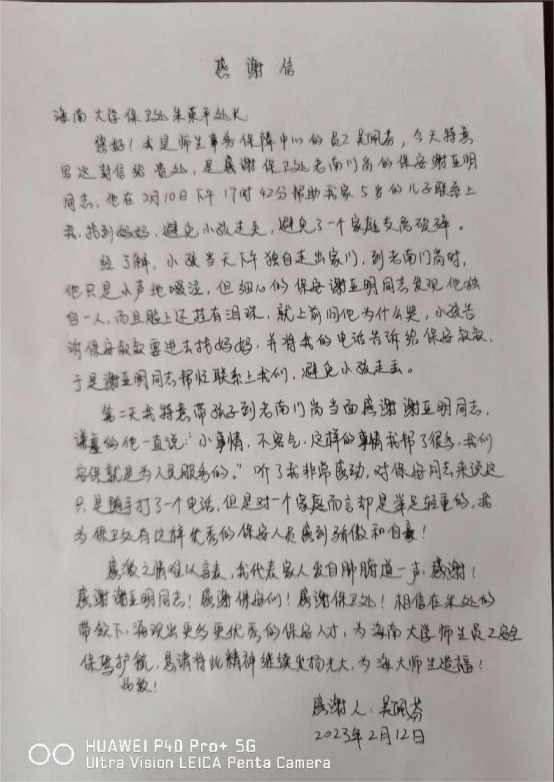 感谢信
海南大学保卫处朱荣平处长
您好！我是师生事务保障中心的员工吴佩芬，今天特意
写这封信给贵处，是感谢保卫处老南门岗的保安谢亚明
同志，他在2月10日下午17时42分帮助我家5岁的儿子联系上
我，找到妈妈，避免小孩走失，避免了一个家庭支离破碎。
经了解，小孩当天下午独自走出家门，到老南门岗时，
他只是小声地啜泣，但细心的保安谢亚明同志发现他独
自一人，而且脸上还挂有泪珠，就上前问他为什么哭，小孩告
诉保安叔叔要进去找妈妈，并将我的电话告诉给保安叔叔，
于是谢亚明同志帮忙联系上我们，避免小孩走丢。
第二天我特意带孩子到老南门岗当面感谢谢亚明同志，
谦虚的他一直说：“小事情，不客气，这样的事情我帮了很多，我们
安保就是为人民服务的。”听了我非常感动，对保安同志来说这
只是随手打了一个电话，但是对一个家庭而言却是举足轻重的，我
为保卫处有这样优秀的保安人员感到骄傲和自豪！
感激之情难以言表，我代表家人发自肺腑道一声，感谢！
感谢谢亚明同志！感谢保安们！感谢保卫处！相信在朱处的
带领下，涌现出更多更优秀的保安人才，为海南大学师生员工安全
保驾护航，恳请将此精神继续发扬光大，为海大师生造福！
此致！
感谢人：吴佩芬
2023年2月12日
HUAWEI P40 Pro+ 5G
Ultra Vision LEICA Penta Camera